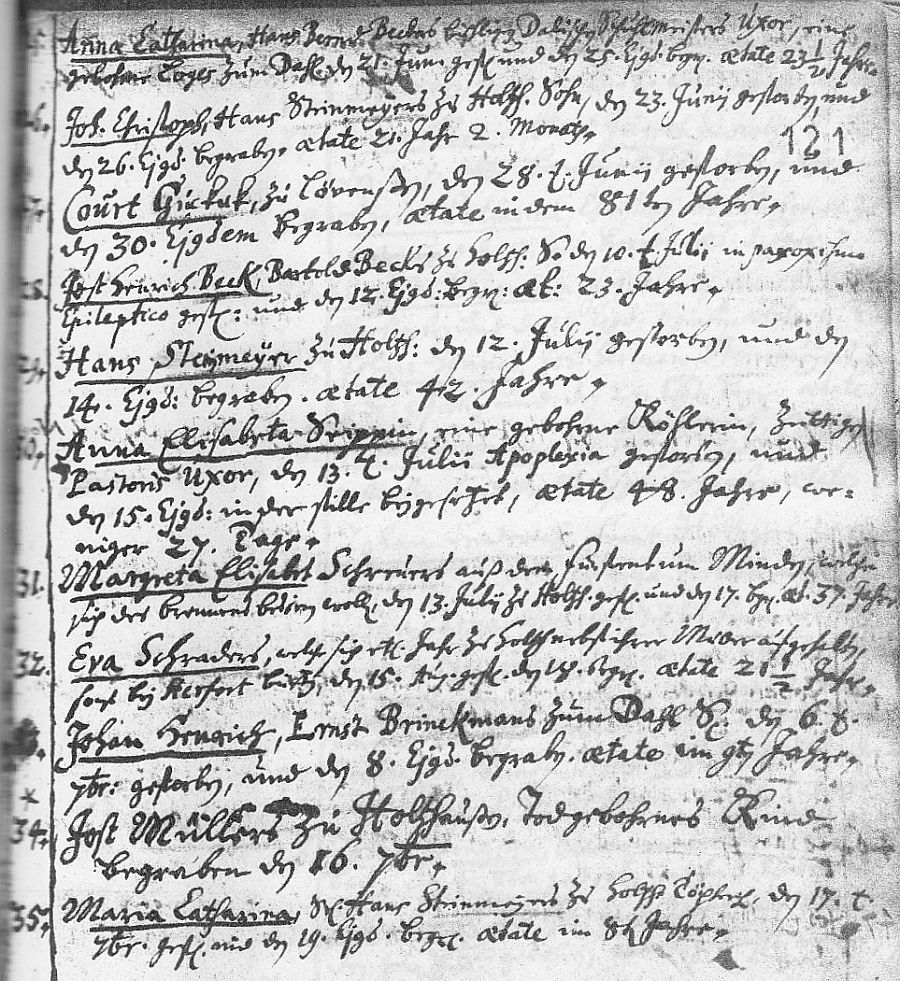 25. Anna Catharina, Hans Bernd Beckers Uxor, eine
gebohrne zum Dahl den 21. Junii gest. und den 25. Ejusd. begr. ætate 23 1/2 Jahr.
26. Joh. Christoph, Hans Steinmeyers zu Holtzh. Sohn, den 23. Junij gestorben, und
den 26. Ejgd. begraben ætate 21. Jahr 2. Monaht.
121
27. Court Gickuk, zu Lövensen, den 28. t. Junij gestorben, und
den 30. Ejgdem begraben, ætate in dem 81ten Jahre.
28. Jost Henrich Beck, Bartold Becks zu Holtzh: So den 10. t. Julij in paroxismo
Epileptico gest: und den 12. Ejgd: begr: æt: 23. Jahre.
29. Hans Steinmeyer zu Holtzh: den 12. Julij gestorben, und den
14. Ejgd: begraben. ætate 42. Jahre.
30. Anna Elisabeta Seippin, eine gebohrne Köhlerin, zeitigen
Pastoris Uxor, den 13. t. Julii Apoplexia gestorben, und
den 15. Ejgd: in der stille beygesetzet, ætate 48. Jahre, we=
niger 27. Tage.
31. Margreta Elisabet Schreuers auß dem Fürstentum Minden, welche
sich des brunnens bedienen wollen, den 13. Julij zu Holtzh. gest. und den 17. begr. æt. 37. Jahre
32. Eva Schraders, welche sich etl. Jahr zu Holtzh nebst ihrer Mutter aufgehalten,
sonst bey Herfort bürtig, den 15. Aug. gest. den 18. begr. ætate 21 1/2 Jahr.
33. Johan Henrich, Ernst Brinckmans zum Dahl S. den 6. t.
7br: gestorben, und den 8. Ejgd. begraben. ætate im 9ten Jahre.
34. Jost Müllers zu Holtzhaußen, Todgebohrnes Kind
begraben den 16. 7br.
35. Maria Catharina, Hans Steinmeyers zu Holtzh Töchterl. den 17. t.
7br. gest. und den 19. Ejgd. begr. ætate im 8ten Jahre.